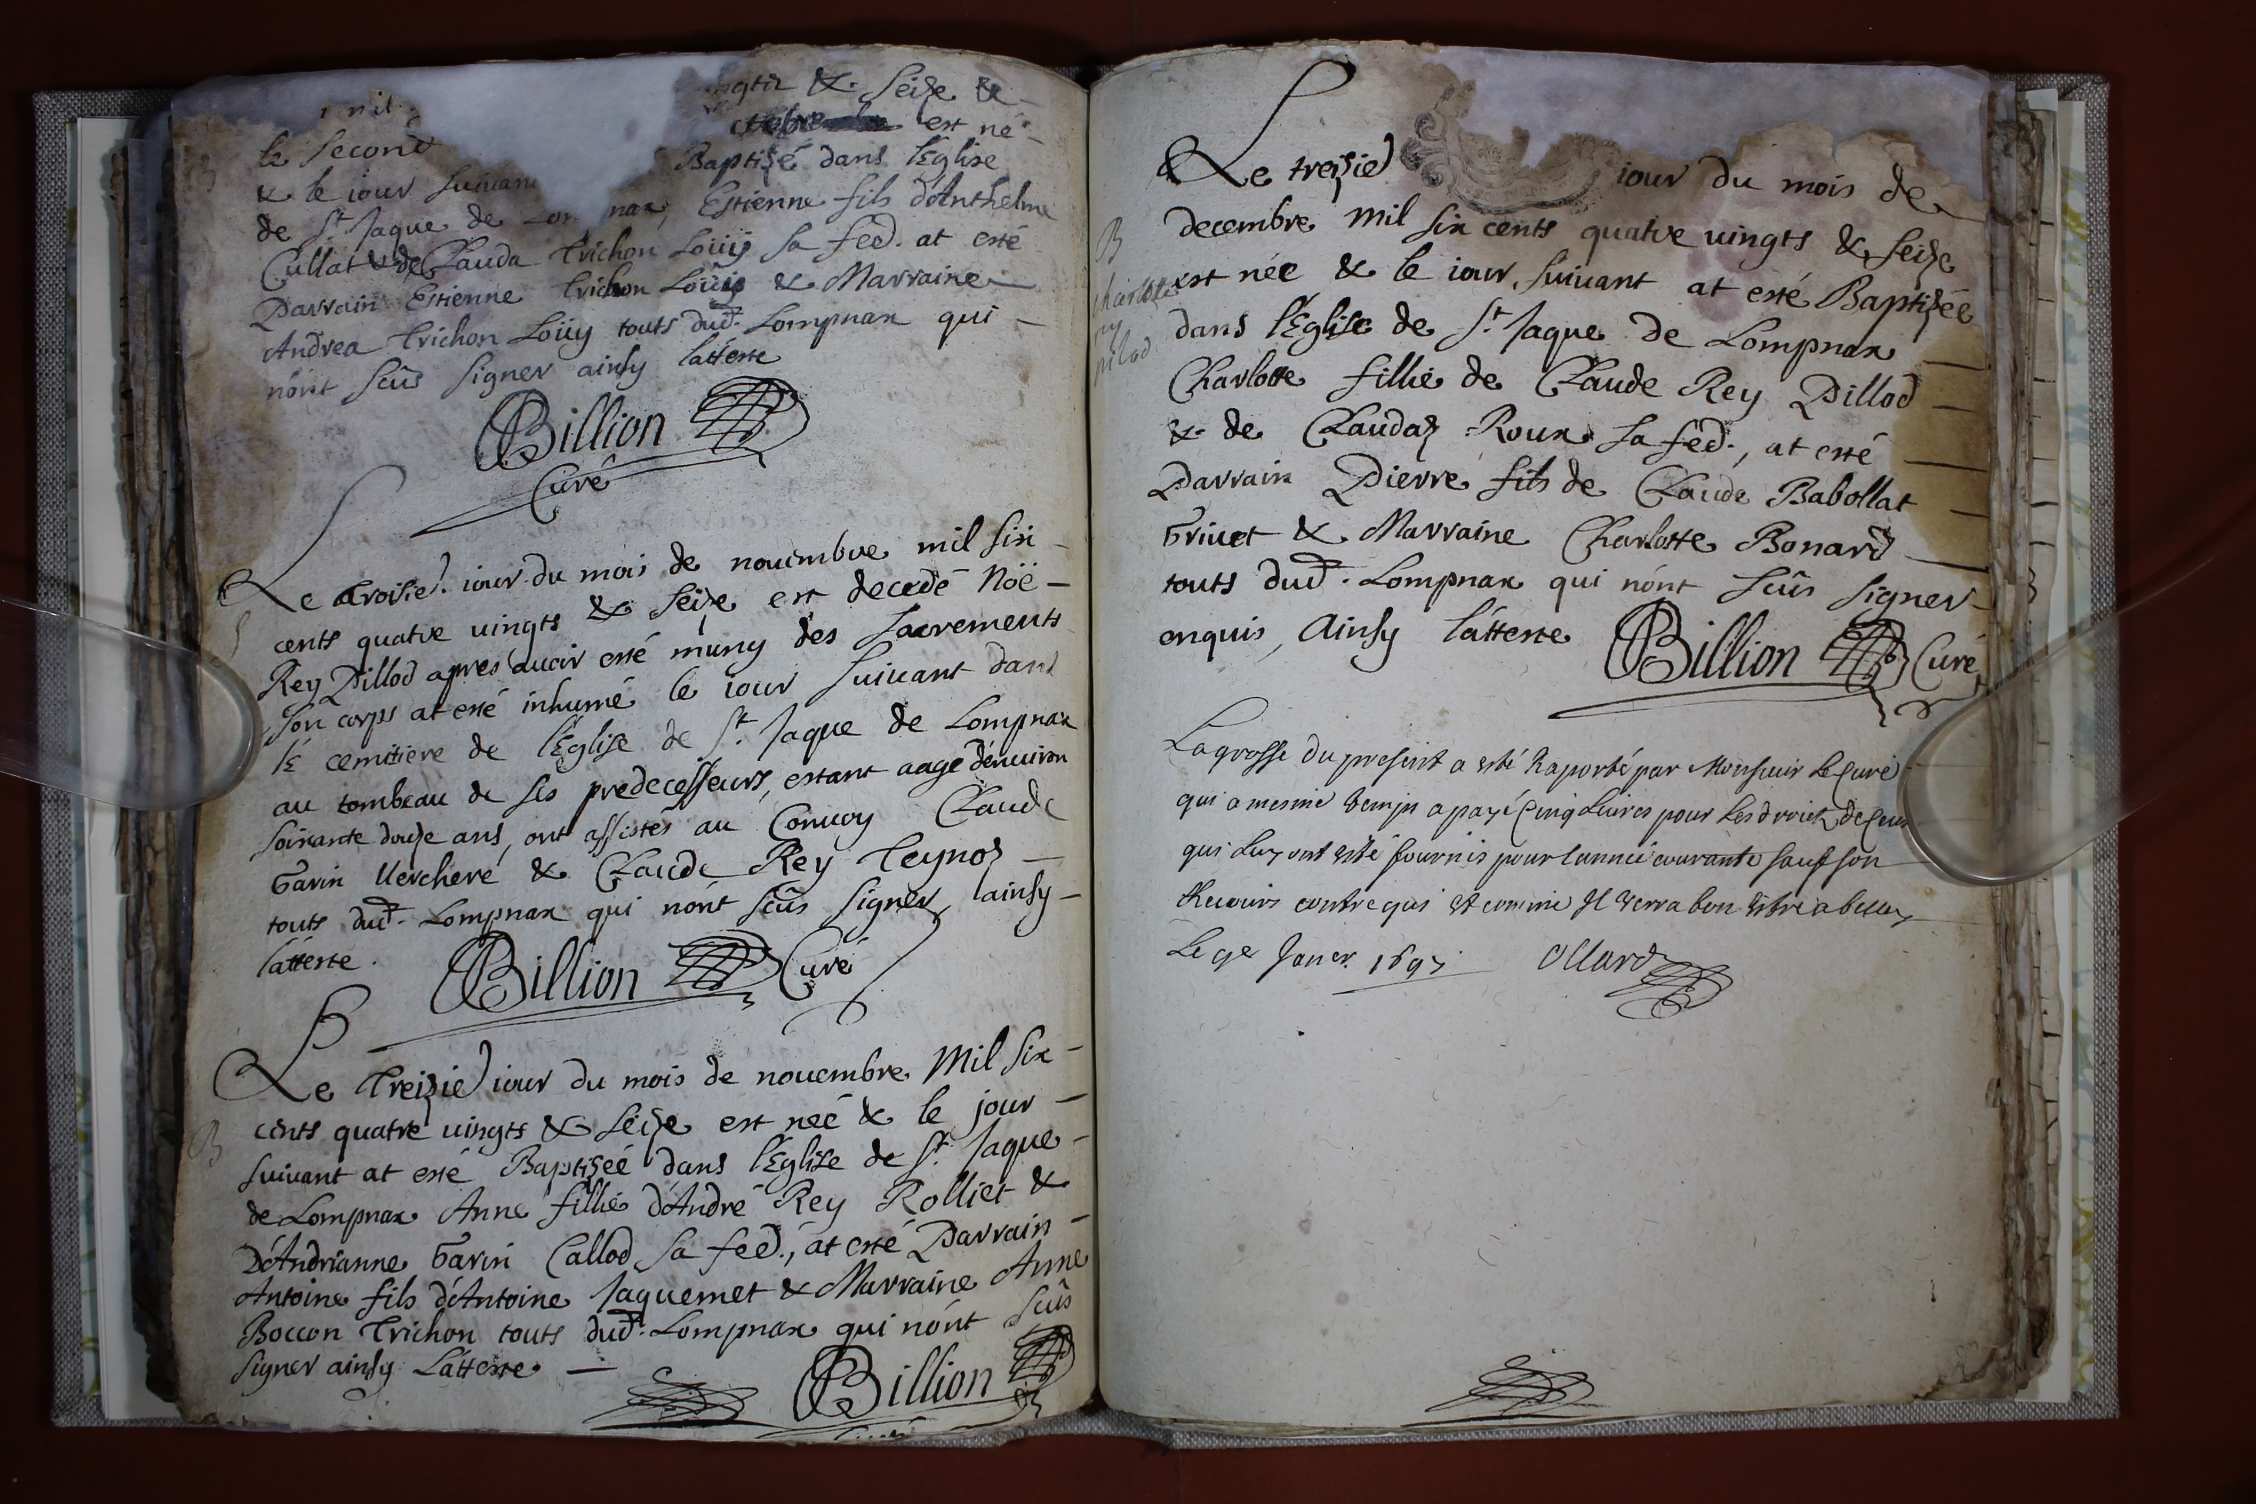 mil ngtz & Seize &
le second ctobre est né
& le iour suivan Baptizé dans l'Eglise
de St Jaque de Lompnax, Estienne fils d'Anthelme
Cullat & de Clauda Trichon Loüy sa fed. at esté
Parrain Estienne Trichon Loüy & Marraine
Andrea Trichon Loüy touts dud. Lompnax qui
n'ont scûs signer ainsy l'atteste
Billion
Curé
Le troisie. iour du mois de nouembre mil six
cents quatre uingts & seize est decedé Noë
Rey Pillod apres auoir esté muny des sacrements
son corps at esté inhumé le iour suiuant dans
le cemitiere de l'Eglise de St Jaque de Lompnax
au tombeau de ses predecesseurs, estant aagé d'enuiron
soixante douze ans, ont assistés au Conuoy Claude
Garin Uercheré & Claude Rey Teynoz
touts dud. Lompnax qui n'ont scûs signer, ainsy
l'atteste. Billion Curé
Le Treizie iour du mois de nouembre Mil six
B cents quatre uingts & seize est neé & le jour
suiuant at esté Baptizeé dans l'Eglise de St Jaque
de Lompnax Anne fillie d'André Rey Rolliet &
D'Andrianne Garin Callod sa fed., at esté Parrain
Antoine fils d'Antoine Jaquemet & Marraine Anne
Boccon Trichon touts dud. Lompnax qui n'ont scûs
signer ainsy l'atteste Billion
Le treizie iour du mois de
B decembre mil six cents quatre uingts & seize
charlotte est née & le iour suiuant at esté Baptizée
rey dans l'Eglise de St Jaque de Lompnax
pilod Charlotte fillie de Claude Rey Pillod
& de Claudaz Roux sa fed., at esté
Parrain Pierre fils de Claude Babollat
Griuet & Marraine Charlotte Bonard
touts dud. Lompnax qui n'ont scûs signer
enquis, Ainsy l'atteste Billion Curé
La grosse du present a esté raporté par Monsieur le Curé
qui a mesme temps a payé Cinq Liures pour les droicts de ceux
qui luy ont esté fournis pour l'annee courante sauf son
Recours contre qui et comme Il verra bon estre a belley
Le 9e Janer. 1697 Ollard